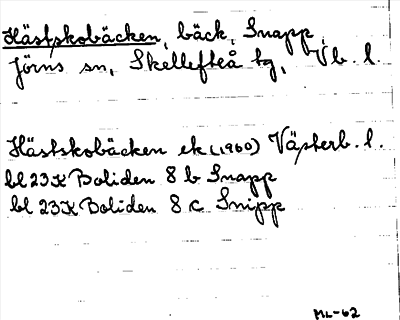 Hästskobäcken, bäck, Snapp,
Jörns sn, Skellefteå tg, Vb. l.
Hästskobäcken ek (1960) Västerb. l.
bl 23K Boliden 8 b Snapp
bl 23K Boliden 8 c Snipp
ML-62